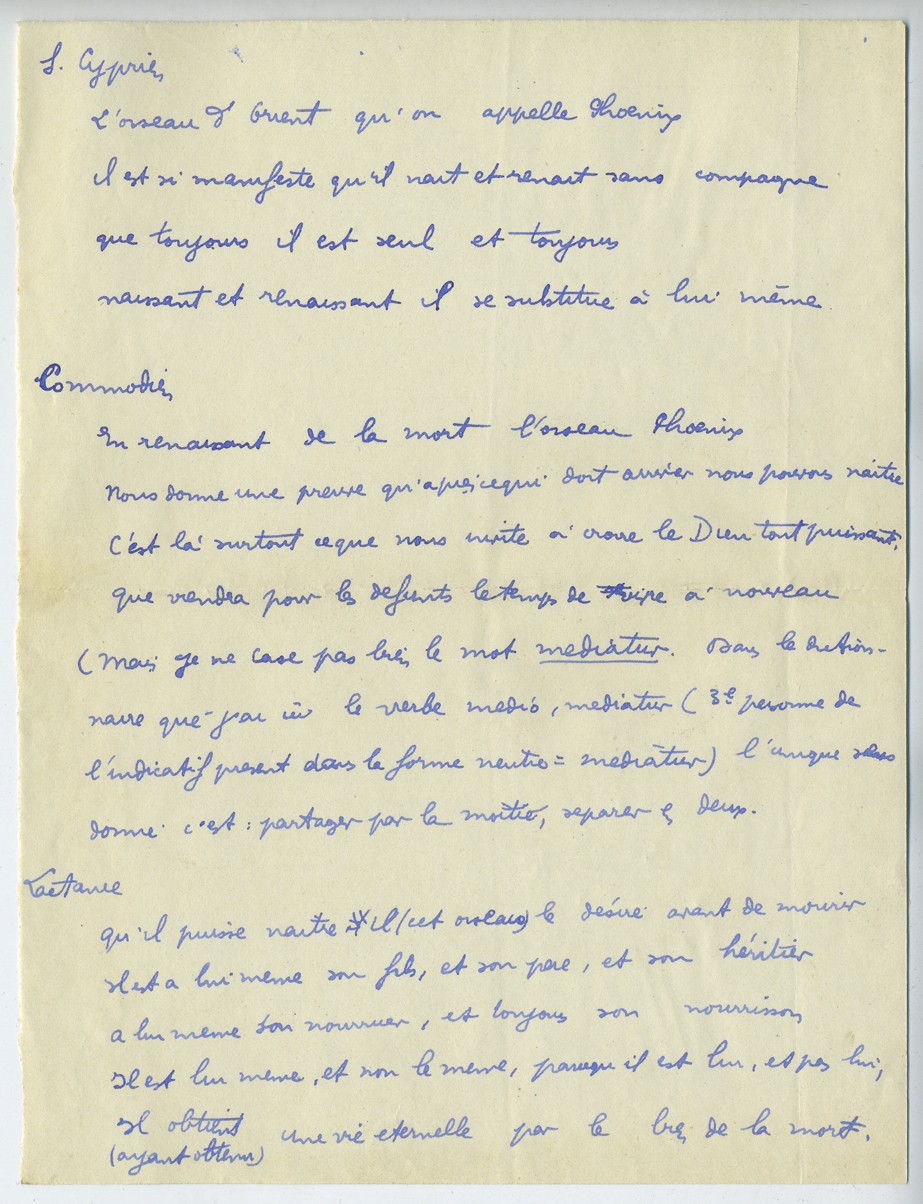 S. Cyprien
L'oiseau d'Orient qu'on appelle Phoenix
il est si manifeste qu'il nait et renait sans compagne
que toujours il est seul et toujours
naissant et renaissant il se substitue à lui même
Commodien
En renaissant de la mort l'oiseau Phoenix
Nous donne une preuve qu'après ce qui doit arriver nous pouvons naitre
C'est là surtout ce que nous invite à croire le Dieu tout puissant,
que viendra pour les defunts le temps de vivre à nouveau
(Mais je ne case pas bien le mot mediatur. Dans le diction-
naire que j'ai ici le verbe medio, mediatur (3e personne de
l'indicatif present dans la forme neutre = mediatur) l'unique sens
donné c'est : partager par la moitié, separer en deux.
Lactance
qu'il puisse naitre il (cet oiseau) le désire avant de mourir
Il est a lui meme son fils, et son pere, et son héritier
a lui meme son nourricier, et toujours son nourrisson
Il est lui meme, et non le meme, parce qu'il est lui, et pas lui,
Il obtient une vie eternelle par le bien de la mort.
(ayant obtenu)